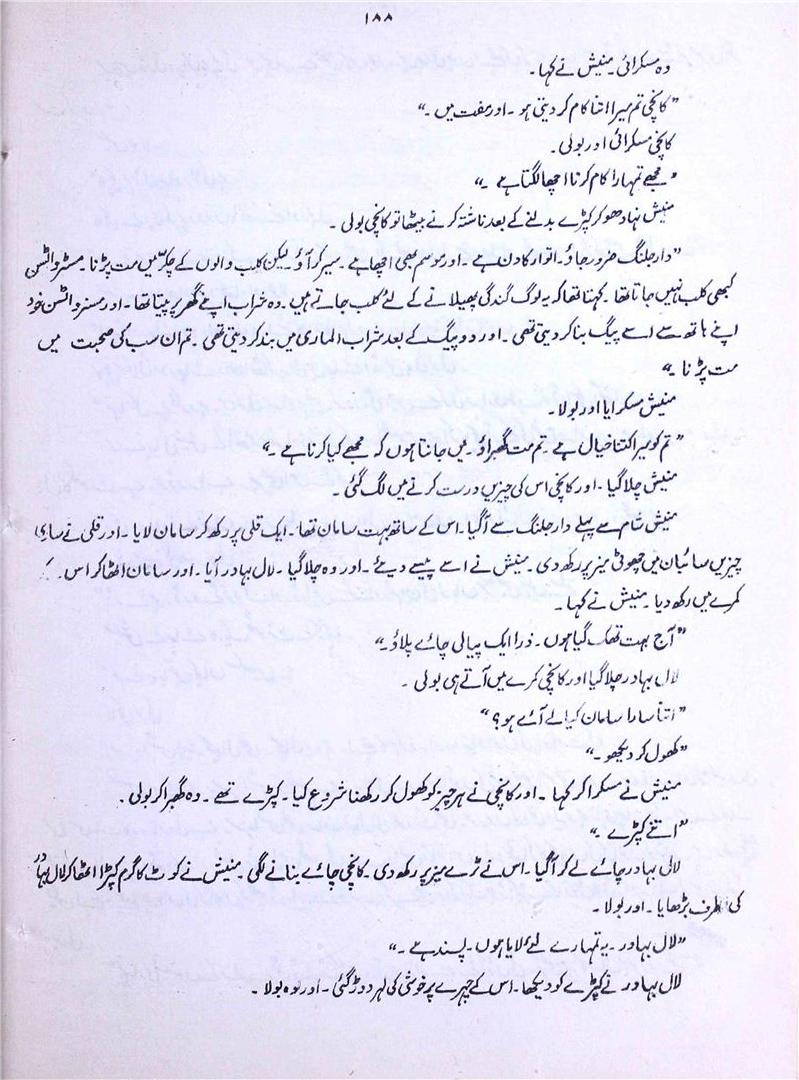 ۱۸۸
وہ مسکرائی۔ منیش نے کہا۔
"کانچی تم میرا اتنا کام کر دیتی ہو۔ اور مفت میں۔"
کانچی مسکرائی اور بولی۔
"مجھے تمہارا کام کرنا اچھا لگتا ہے۔"
منیش نہا دھو کر کپڑے بدلنے کے بعد ناشتہ کرنے بیٹھا تو کانچی بولی۔
"دارجلنگ ضرور جاؤ۔ اتوار کا دن ہے۔ اور موسم بھی اچھا ہے۔ سیر کر آؤ لیکن کلب والوں کے چکر میں مت پڑنا۔ مسٹر واٹسن
کبھی کلب نہیں جاتا تھا۔ کہتا تھا کہ یہ لوگ گندگی پھیلانے کے لئے کلب جاتے ہیں۔ وہ شراب اپنے گھر پر پیتا تھا۔ اور مسز واٹسن خود
اپنے ہاتھ سے اسے پیگ بنا کر دیتی تھی۔ اور دو پیگ کے بعد شراب الماری میں بند کر دیتی تھی۔ تم ان سب کی صحبت میں
مت پڑنا۔"
منیش مسکرایا اور بولا۔
"تم کو میرا کتنا خیال ہے۔ تم مت گھبراؤ۔ میں جانتا ہوں کہ مجھے کیا کرنا ہے۔"
منیش چلا گیا۔ اور کانچی اس کی چیزیں درست کرنے میں لگ گئی۔
منیش شام سے پہلے دارجلنگ سے آ گیا۔ اس کے ساتھ بہت سامان تھا۔ ایک قلی پر رکھ کر سامان لایا۔ اور قلی نے ساری
چیزیں سائبان میں چھوٹی میز پر رکھ دی۔ منیش نے اسے پیسے دیئے۔ اور وہ چلا گیا۔ لال بہادر آیا۔ اور سامان اٹھا کر اس کے
کمرے میں رکھ دیا۔ منیش نے کہا۔
"آج بہت تھک گیا ہوں۔ ذرا ایک پیالی چائے پلاؤ۔"
لال بہادر چلا گیا اور کانچی کمرے میں آتے ہی بولی۔
"اتنا سارا سامان کیا لے آئے ہو؟"
"کھول کر دیکھو۔"
منیش نے مسکرا کر کہا۔ اور کانچی نے ہر چیز کو کھول کر رکھنا شروع کیا۔ کپڑے تھے۔ وہ گھبرا کر بولی۔
"اتنے کپڑے۔"
لال بہادر چائے لے کر آ گیا۔ اس نے ٹرے میز پر رکھ دی۔ کانچی چائے بنانے لگی۔ منیش نے کوٹ کا گرم کپڑا اٹھا کر لال بہادر
کی طرف بڑھایا۔ اور بولا۔
"لال بہادر۔ یہ تمہارے لئے لایا ہوں۔ پسند ہے۔"
لال بہادر نے کپڑے کو دیکھا۔ اس کے چہرے پر خوشی کی لہر دوڑ گئی۔ اور وہ بولا۔